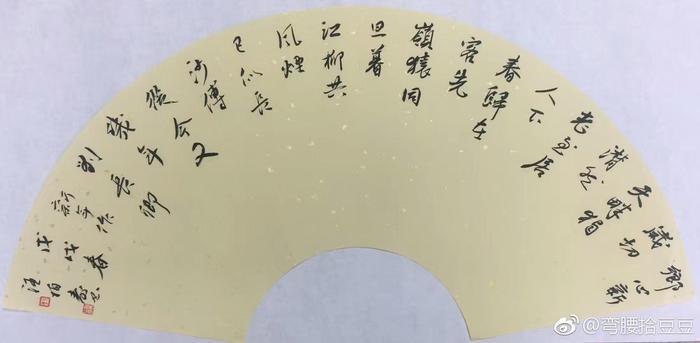 鄉心新
歲切
天畔獨
潸然
老至居
人下
春歸在
客先
嶺猿同
旦暮
江柳共
風煙
已似長
沙傅
從今又
幾年
劉長卿
新年作
戊戌春
汪柏
@弯腰拾豆豆